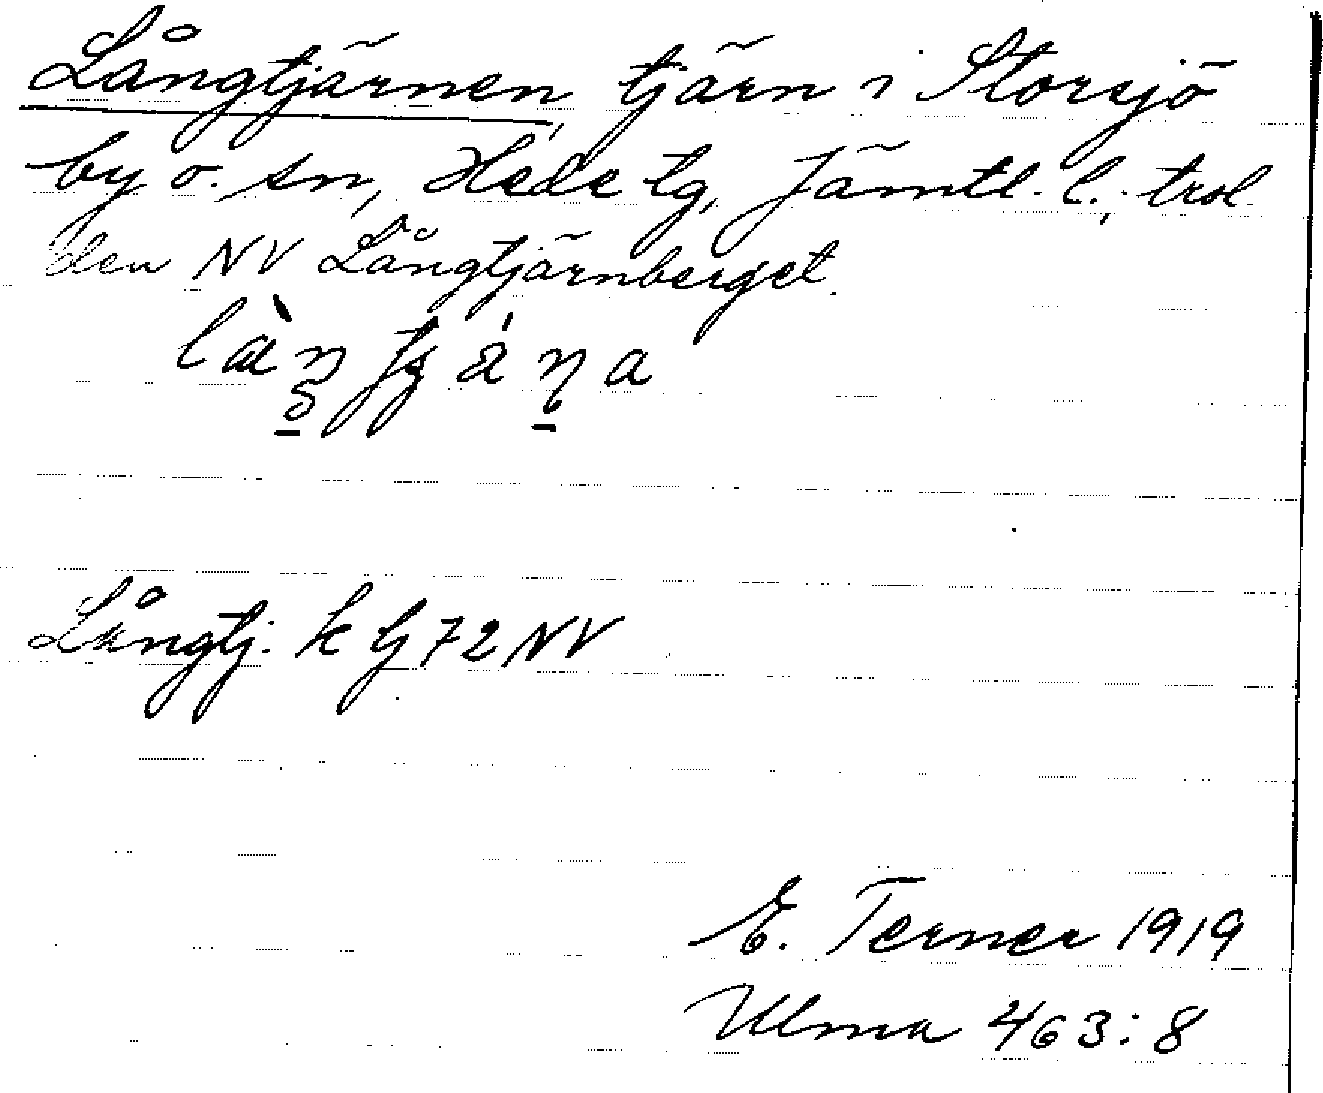 Långtjärnen, tjärn i Storsjö
by o. sn, Hede tg, Jämtl. l.; trol
den NV Långtjärnberget.
Långtj. k G72NV
E. Terner 1919
Ulma 463:8